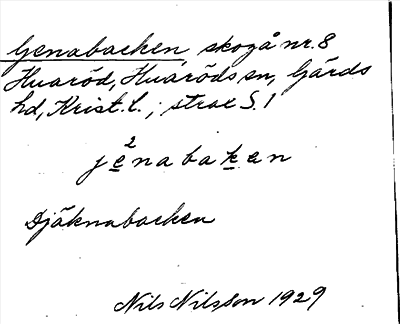 Genabacken, skogå nr. 8
Huaröd, Huaröds sn, Gärds
hd, Krist. l.; strax S. 1
2
jenabaken
Djäknabacken
Nils Nilsson 1929